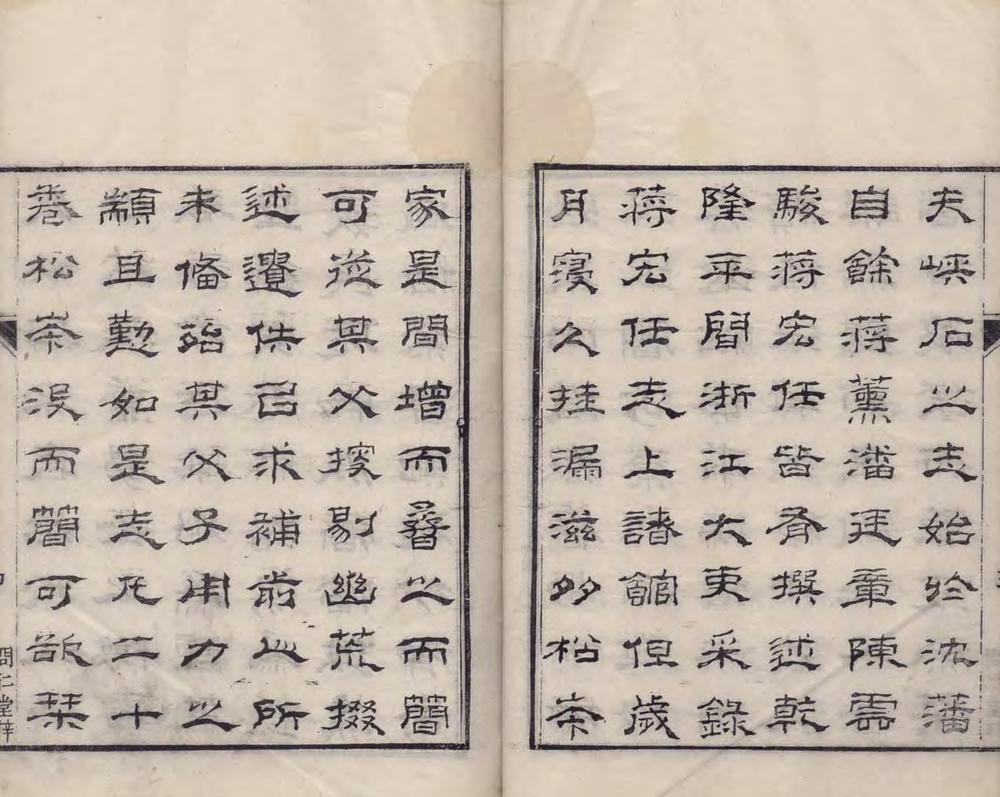 夫峽石之志始於沈藩
自餘蔣薰潘廷章陳雲
駿蔣宏任皆有撰述乾
隆平間浙江大吏采錄
蔣宏任志上諸館但歲
月寖久挂漏滋多松
家是間增而之而簡
可從其父搜剔幽荒掇
述遺佚以求補前人所
未備殆其父子用力之
顓且勤如是志凡二十
卷松沒而簡可欲栞
仁堂梓